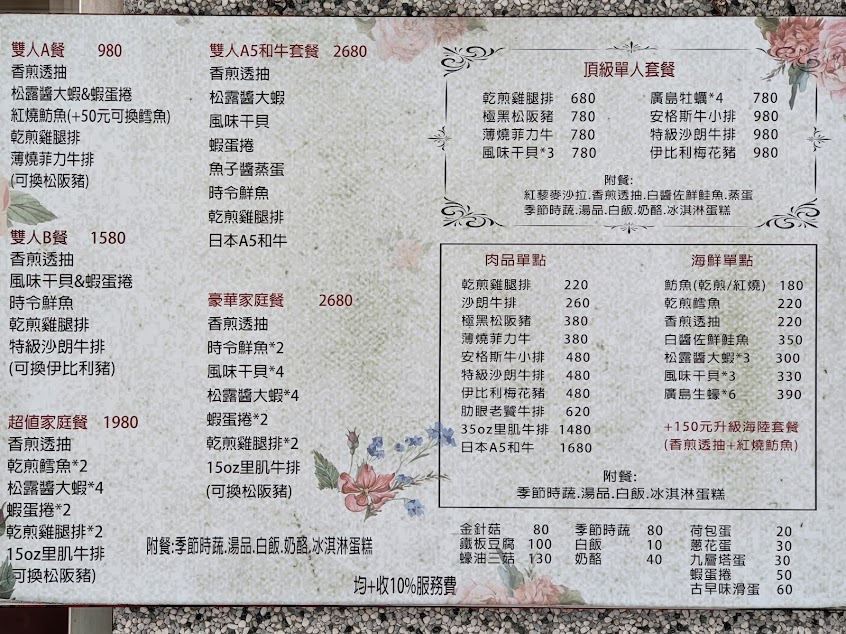 雙人A餐 980
香煎透抽
松露醬大蝦&蝦蛋捲
紅燒魴魚(+50元可換鱈魚)
乾煎雞腿排
薄燒菲力牛排
(可換松阪豬)
雙人B餐 1580
香煎透抽
風味干貝&蝦蛋捲
時令鮮魚
乾煎雞腿排
特級沙朗牛排
(可換伊比利豬)
超值家庭餐 1980
香煎透抽
乾煎鱈魚*2
松露醬大蝦*4
蝦蛋捲*2
乾煎雞腿排*2
15oz里肌牛排
(可換松阪豬)
雙人A5和牛套餐 2680
香煎透抽
松露醬大蝦
風味干貝
蝦蛋捲
魚子醬蒸蛋
時令鮮魚
乾煎雞腿排
日本A5和牛
豪華家庭餐 2680
香煎透抽
時令鮮魚*2
風味干貝*4
松露醬大蝦*4
蝦蛋捲*2
乾煎雞腿排*2
15oz里肌牛排
(可換松阪豬)
附餐:季節時蔬.湯品.白飯.奶酪.冰淇淋蛋糕
均+收10%服務費
頂級單人套餐
乾煎雞腿排 680
極黑松阪豬 780
薄燒菲力牛 780
風味干貝*3 780
廣島牡蠣*4 780
安格斯牛小排 980
特級沙朗牛排 980
伊比利梅花豬 980
附餐:
紅藜麥沙拉.香煎透抽.白醬佐鮮鮭魚.蒸蛋
季節時蔬.湯品.白飯.奶酪.冰淇淋蛋糕
肉品單點
乾煎雞腿排 220
沙朗牛排 260
極黑松阪豬 380
薄燒菲力牛 380
安格斯牛小排 480
特級沙朗牛排 480
伊比利梅花豬 480
肋眼老饕牛排 620
35oz里肌牛排 1480
日本A5和牛 1680
海鮮單點
魴魚(乾煎/紅燒) 180
乾煎鱈魚 220
香煎透抽 220
白醬佐鮮鮭魚 350
松露醬大蝦*3 300
風味干貝*3 330
廣島生蠔*6 390
+150元升級海陸套餐
(香煎透抽+紅燒魴魚)
附餐:
季節時蔬.湯品.白飯.冰淇淋蛋糕
金針菇 80
鐵板豆腐 100
蠔油三菇 130
季節時蔬 80
白飯 10
奶酪 40
荷包蛋 20
蔥花蛋 30
九層塔蛋 30
蝦蛋捲 50
古早味滑蛋 60